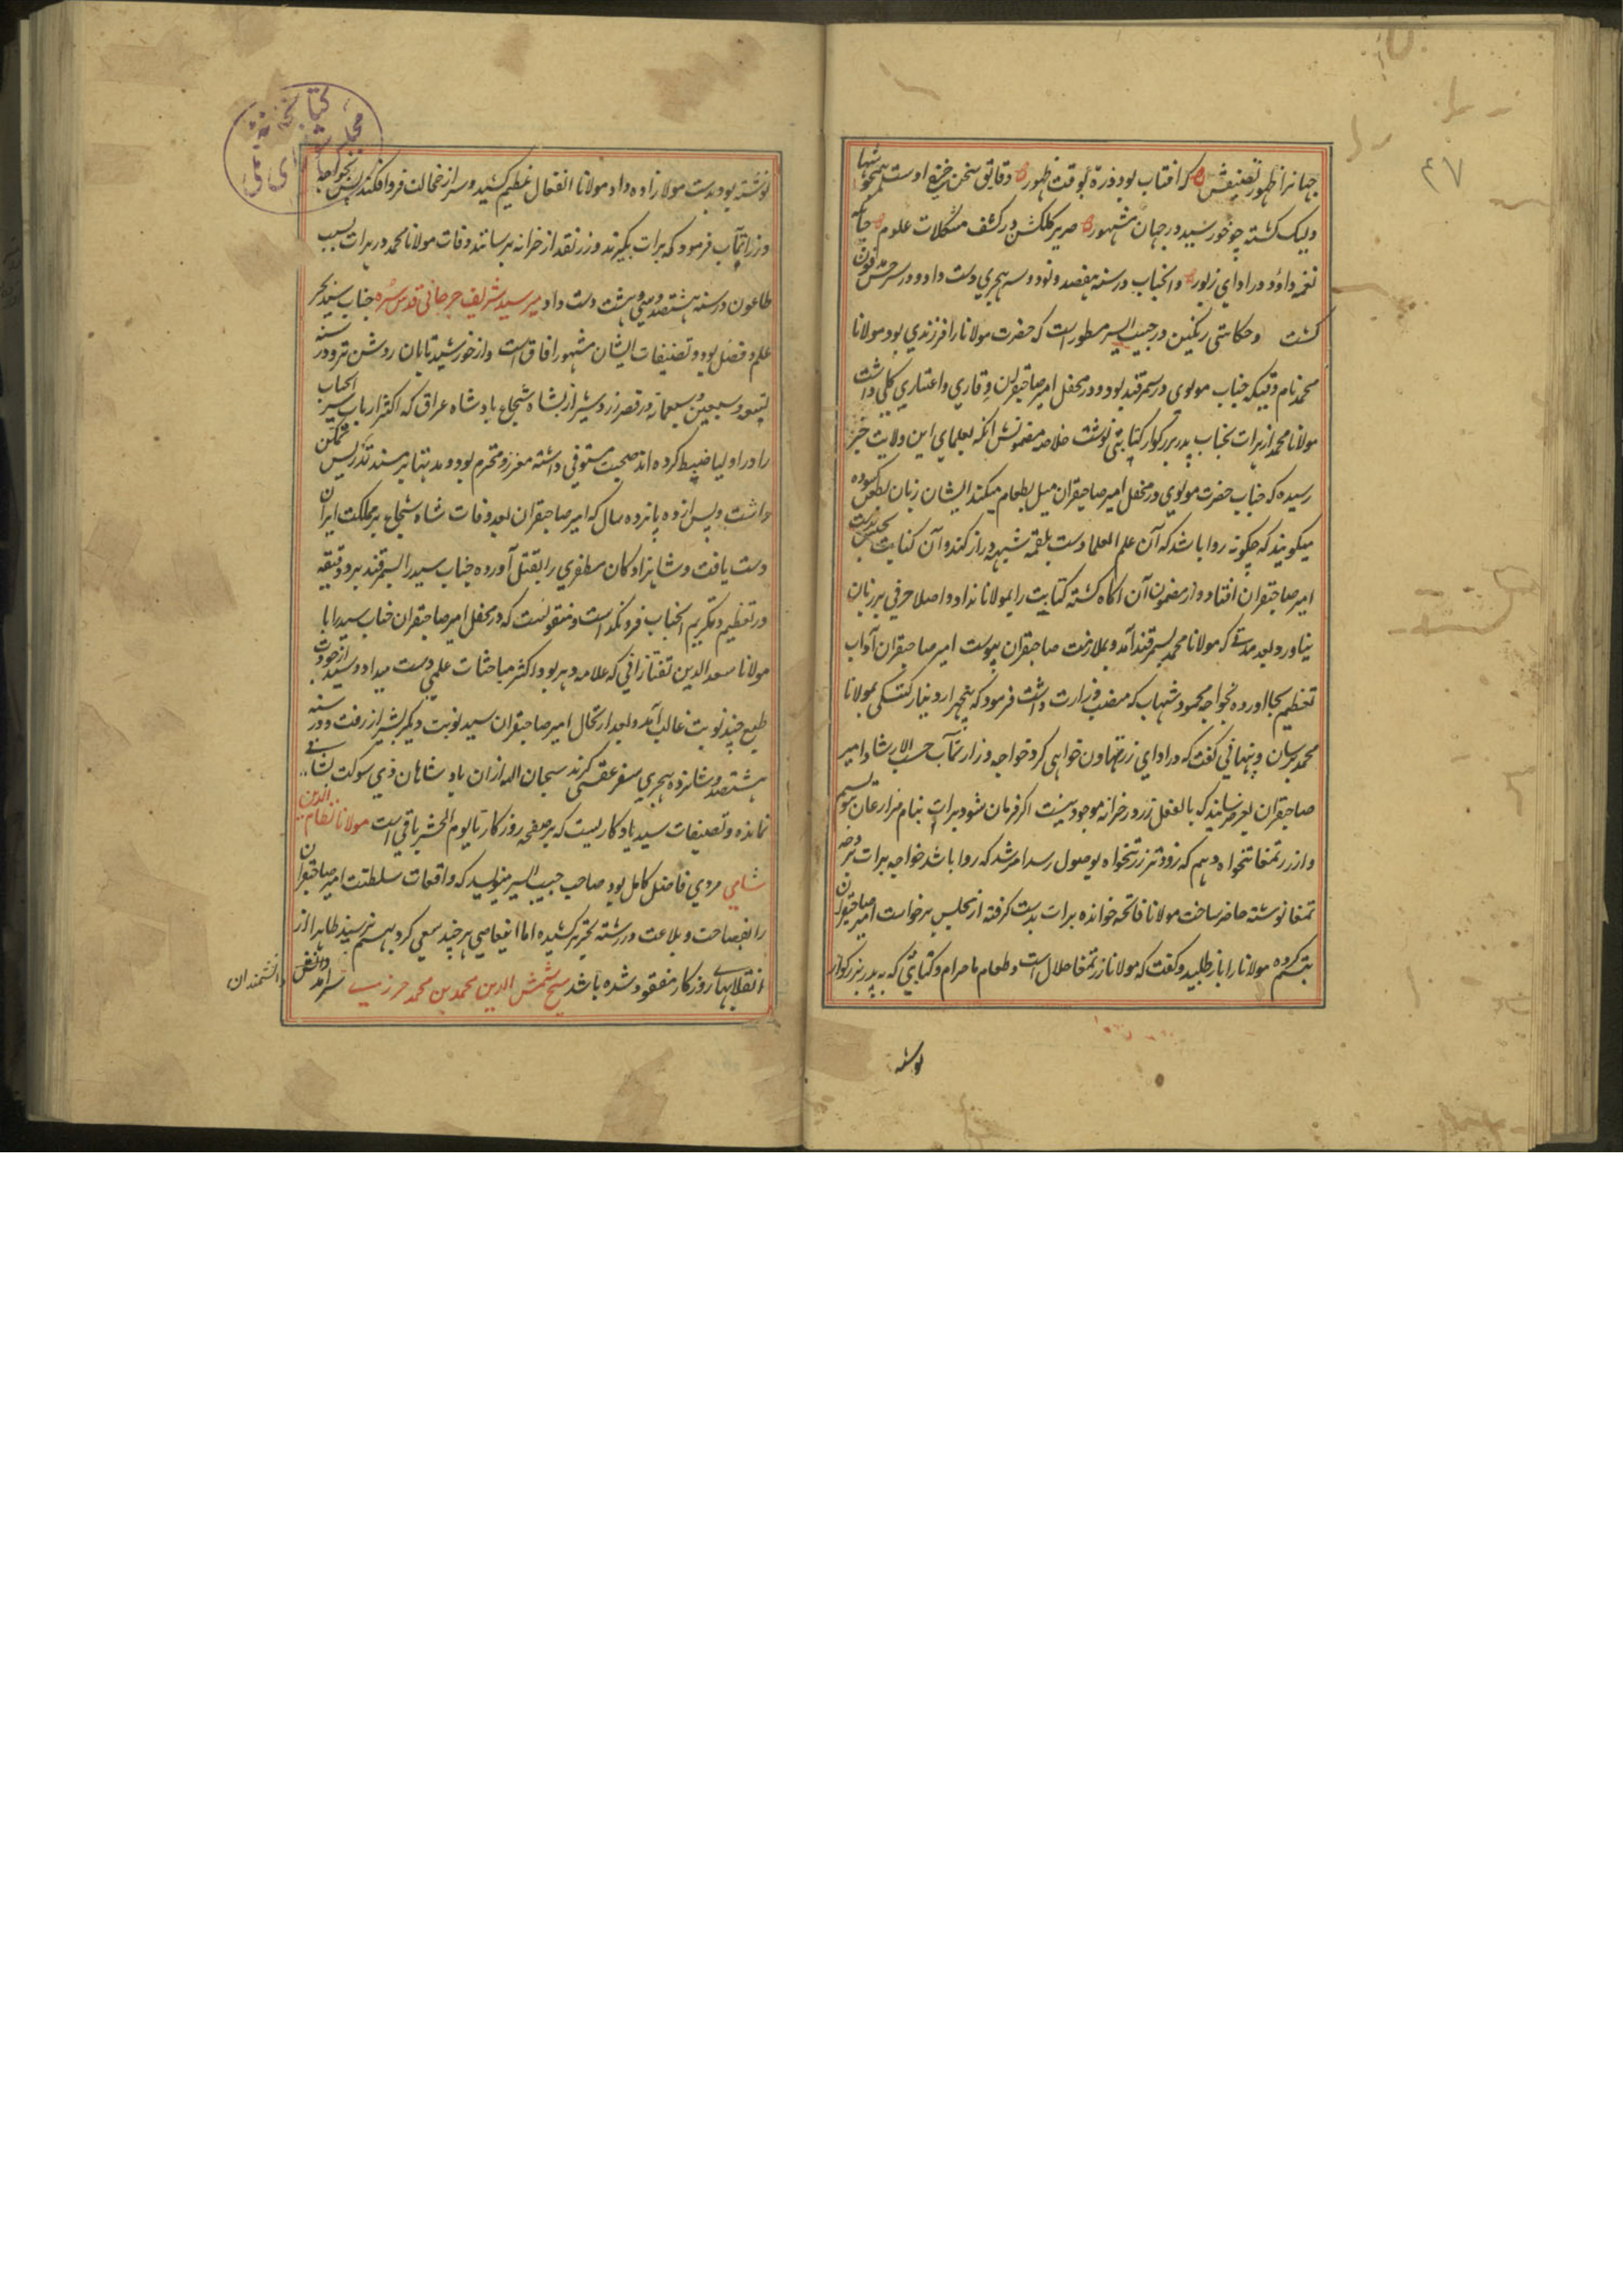 ۴۷
جهانرا ظهور تصنیفش که آفتاب بود ذرهٔ بوقت ظهور دقایق سخن خیزه اوست همچو شبها
ولیک گشته چو خورشید در جهان مشهور صریر کلکش در کشف مشکلات علوم چنانکه
نغمه داؤد در ادای زبور و انجناب در سنه هفصد و نود و سه هجری دست داد و در سرخس مدفون
گشت و حکایتی رنگین در حبیب السیر مسطور است که حضرت مولانا را فرزندی بود مولانا
محمد نام وقتیکه جناب مولوی در سمرقند بود و در محفل امیر صاحبقران وقاری و اعتباری کلی داشت
مولانا محمد از هرات بجناب پدر بزرکوار کتابتی نوشت خلاصه مضمونش انکه بعلمای این ولایت خبر
رسیده که جناب حضرت مولوی در محفل امیر صاحبقران میل بطعام میکند ایشان زبان بطعن کشوده
میکویند که چکونه روا باشد که آن علم العلما دست بلقمه شبهه دراز کند و آن کتابت بجنس بدست
امیر صاحبقران افتاد و از مضمون آن اکاه کشته کتابت را بمولانا نداد و اصلا حرفی بر زبان
نیاورد و بعد مدتی که مولانا محمد بسمرقند آمد و بملازمت صاحبقران پیوست امیر صاحبقران آداب
تعظیم بجا اورده بخواجه محمود شهاب که منصب وزارت داشت فرمود که پنجهزار دینار کتکی بمولانا
محمد برسان و پنهانی کفت که در ادای زر تهاون خواهی کرد خواجه وزارتمآب حسب الارشاد امیر
صاحبقران بعرض رسانید که بالفعل زر در خزانه موجود نیست اکر فرمان شود برات بنام مزارعان نویسیم
و از زر تمغا تنخواه دهیم که زودتر زر تنخواه بوصول رسد امر شد که روا باشد خواجه برات بوجه
تمغا نوشته حاضر ساخت مولانا فاتحه خوانده برات بدست کرفته از مجلس برخواست امیر صاحبقران
تبسم کرده مولانا را باز طلبید و کفت که مولانا زر تمغا حلال است و طعام ما حرام و کتابتی که به پدر بزرکوار
نوشته
کتابخانه
مجلس شورای ملی
نوشته بود بدست مولانا زاده داد مولانا انفعال عظیم کشید و سر از خجالت فرو افکند پس بخواجه
وزرا تمآب فرمود که برات بکیرند و زر نقد از خزانه برسانند وفات مولانا محمد در هرات بسبب
طاعون در سنه هشتصد و سی و هشت دست داد میر سید شریف جرجانی قدس سره جناب سید بحر
علم و فضل بود و تصنیفات ایشان مشهور افاق است و از خورشید تابان روشن تر و در سنه
تسع و سبعین و سبعمائه در قصر زرد شیراز بشاه شجاع بادشاه عراق که اکثر ارباب سیر انجناب
را در اولیا ضبط کرده اند صحبت مستوفی داشته معزز و محترم بود و مدتها بر مسند تدریس تمکن
داشت و پس از ده پانزده سال که امیر صاحبقران بعد وفات شاه شجاع بر مملکت ایران
دست یافت و شاهزادکان مظفری را بقتل آورده جناب سید را بسمرقند برد و دقیقه
در تعظیم و تکریم انجناب فرو نکذاشت و منقولست که در محفل امیر صاحبقران جناب سید را با
مولانا سعد الدین تفتازانی که علامه دهر بود اکثر مباحثات علمی دست میداد و سید از جودت
طبع چند نوبت غالب آمد و بعد ارتحال امیر صاحبقران سید نوبت دیکر بشیراز رفت و در سنه
هشتصد و شانزده هجری سفر عقبی کزید سبحان الله از ان بادشاهان ذی سوکت نشانی
نمانده و تصنیفات سید یادکاریست که بر صفحه روزکار تا یوم الحشر باقی است مولانا نظام الدین
شامی مردی فاضل کامل بود صاحب حبیب السیر مینویسد که واقعات سلطنت امیر صاحبقران
را بفصاحت و بلاعت در رشته تحریر کشیده اما اینعاصی هر چند سعی کرد بهم نرسید ظاهرا از
انقلابهای روزکار مفقود شده باشد شیخ شمس الدین محمد بن محمد جزری سرامد دانشمندان